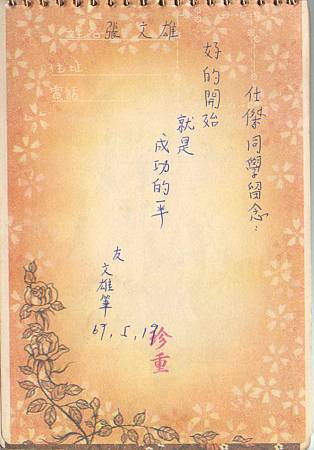 姓名 張文雄
住址
電話
仕傑同學留念:
好的開始
就是
成功的一半
友
文雄筆
69.5.19
珍重